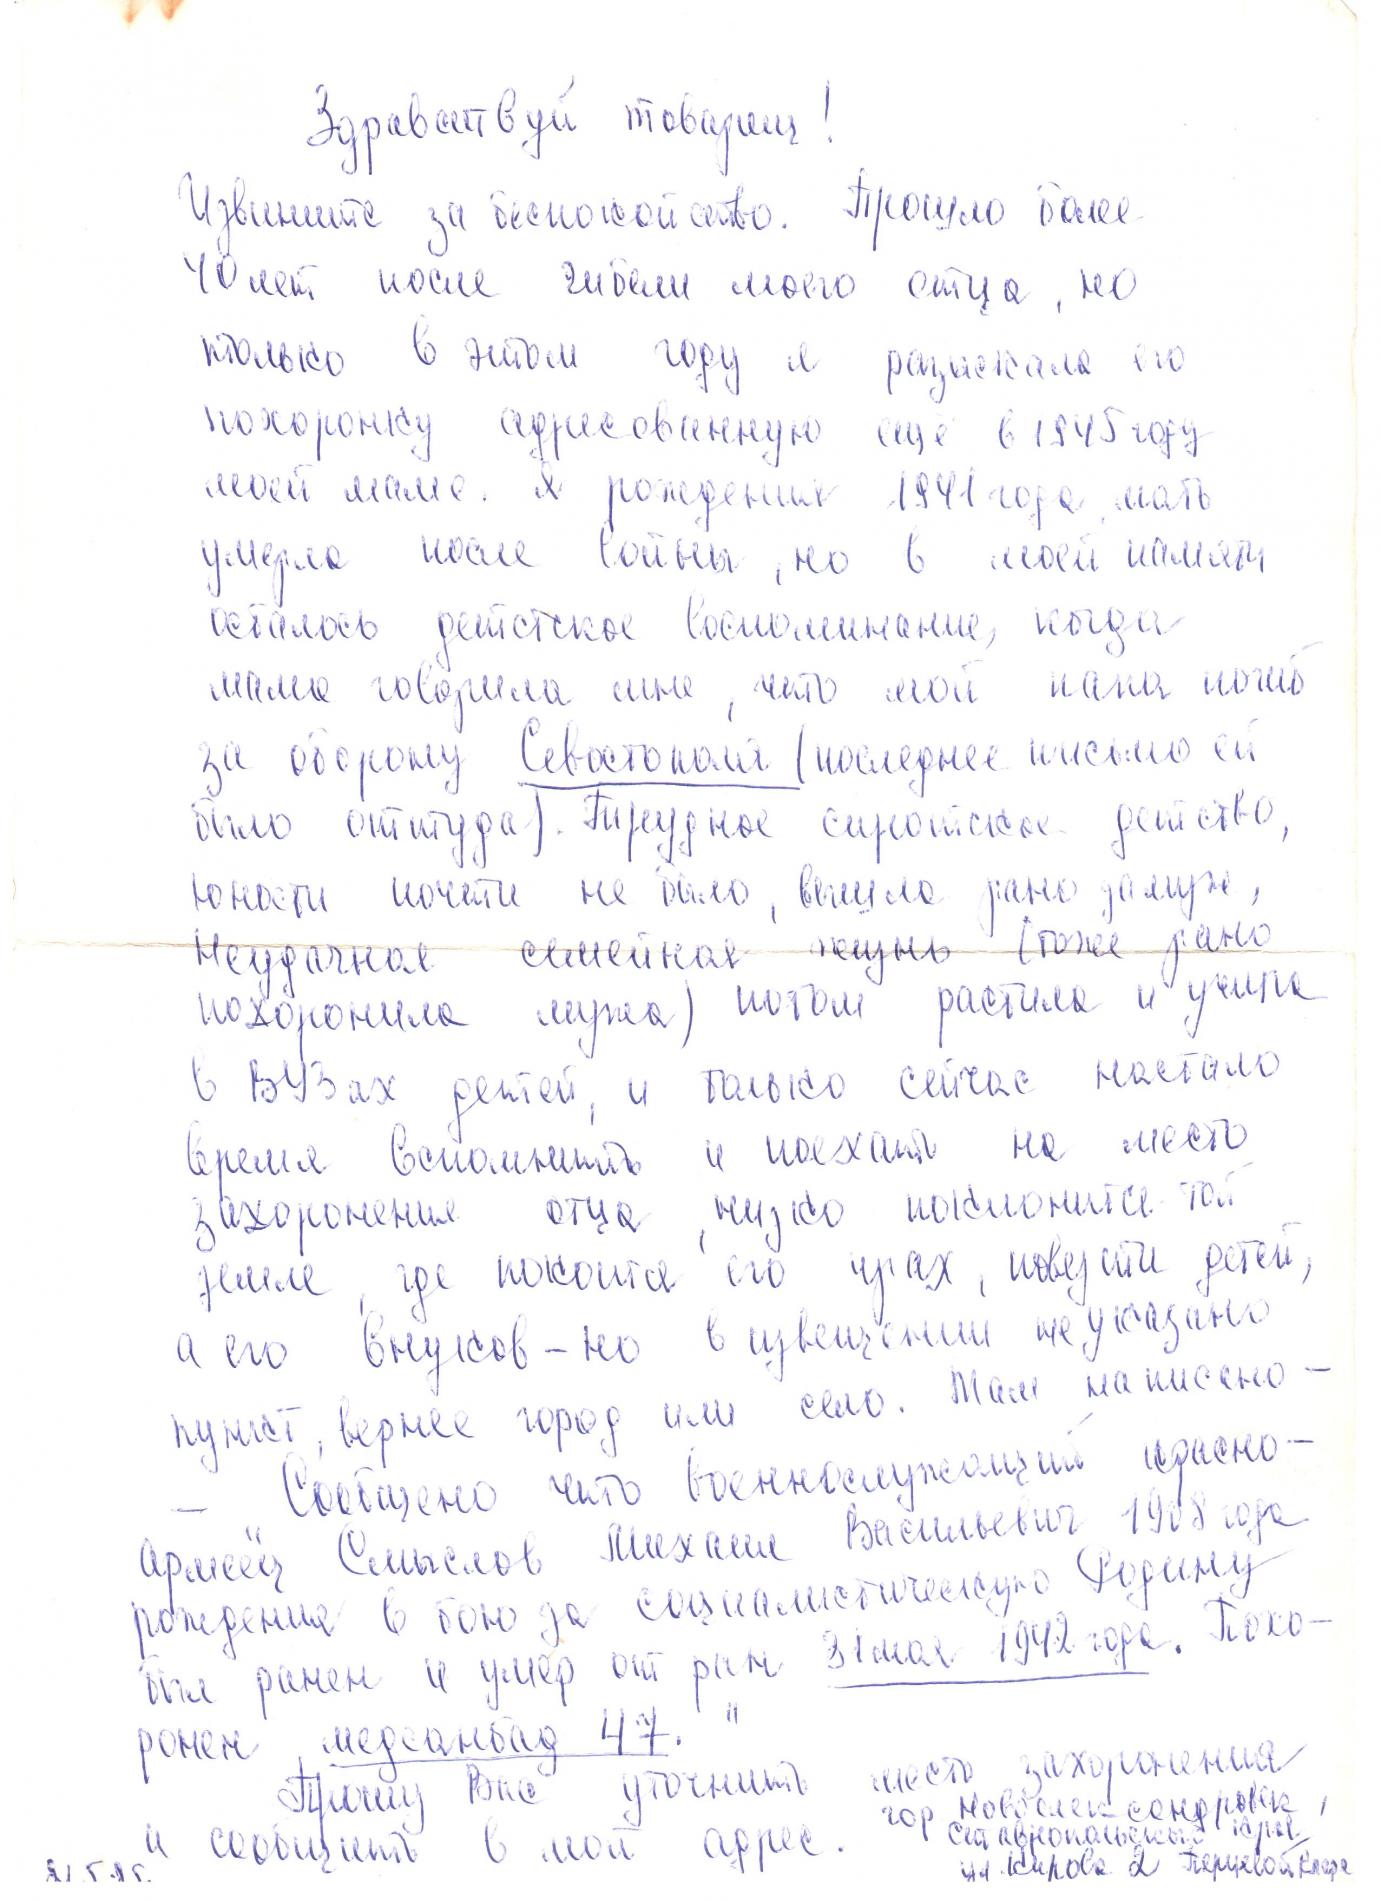 Здравствуй товарищ!
Извините за беспокойство. Прошло более
40 лет после гибели моего отца, но
только в этом году я разыскала его
похоронку адресованную ещё в 1945 году
моей маме. Я рождения 1941 года, мать
умерла после войны, но в моей памяти
осталось детстское воспоминание, когда
мама говорила мне, что мой папа погиб
за оборону Севостополя (последнее письмо ей
было оттуда). Трудное сиротское детство,
юности почти не было, вышла рано замуж,
Неудачная семейная жизнь (тоже рано
похоронила мужа) потом растила и учила
в ВУЗах детей, и только сейчас настало
время вспомнить и поехать на место
захоронения отца, низко поклонится той
земле, где покоится его прах, повезти детей,
а его внуков – но в извещении не указано
пункт, вернее город или село. Там написано –
– Сообщено что военнослужащий красно-
армеец Смыслов Михаил Васильевич 1908 года
рождения в бою за социалистическую Родину
был ранен и умер от ран 31 мая 1942 года. Похо-
ронен, медсанбад 47."
Прошу Вас уточнить место захоронения
и сообщить в мой адрес. гор Новоалександровск,
Ставропольский край
ул Кирова 2